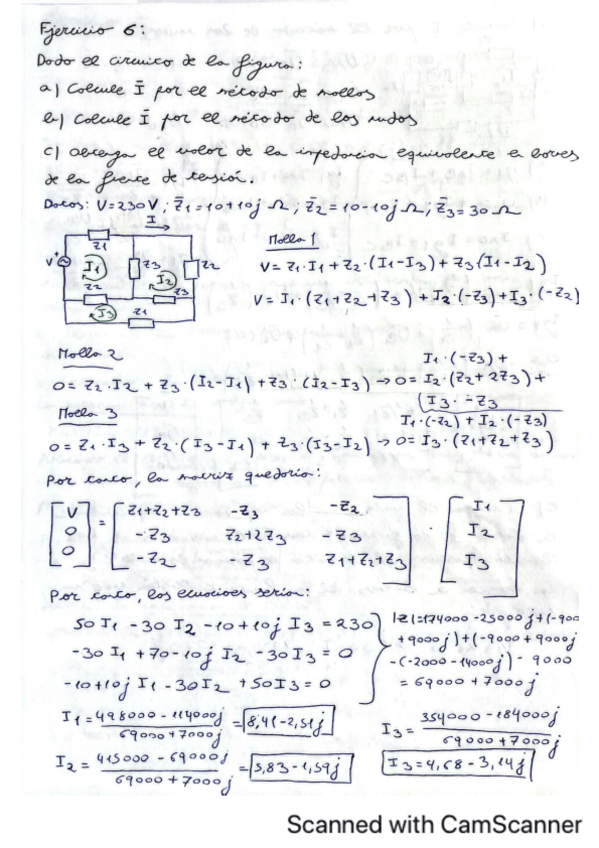 Ejercicio 6:
Dado el circuito de la figura:
a) Calcule Ī por el método de mallas
b) Calcule Ī por el método de los nudos
c) obtenga el valor de la impedancia equivalente en bornes
de la fuente de tensión.
Datos: V=230V; Z̄1=10+10j Ω; Z̄2=10-10j Ω; Z̄3=30 Ω
I
Z1
V
I1
Z3
I2
Z2
Z2
Z3
I3
Z1
Malla 1
V=Z1·I1+Z2·(I1-I3)+Z3(I1-I2)
V=I1·(Z1+Z2+Z3)+I2·(-Z3)+I3·(-Z2)
Malla 2
0=Z2·I2+Z3·(I2-I1)+Z3·(I2-I3)→0=I2·(Z2+2Z3)+
I1·(-Z3)+
I3·-Z3
Malla 3
0=Z1·I3+Z2·(I3-I1)+Z3·(I3-I2)→0=I3·(Z1+Z2+Z3)
I1·(-Z2)+I2·(-Z3)
Por tanto, la matriz quedaría:
[V] = [Z1+Z2+Z3 -Z3 -Z2] · [I1]
[0] [-Z3 Z2+2Z3 -Z3] [I2]
[0] [-Z2 -Z3 Z1+Z2+Z3] [I3]
Por tanto, las ecuaciones serían:
50I1-30I2-10+10j I3=230
-30I1+70-10j I2-30I3=0
-10+10j I1-30I2+50I3=0
|Z|=174000-25000j+(-900
+9000j)+(-9000+9000j
-(-2000-14000j)-9000
=69000+7000j
I1=498000-114000j/69000+7000j=8,41-2,51j
I2=415000-69000j/69000+7000j=5,83-1,59j
I3=354000-184000j/69000+7000j
I3=4,68-3,14j
Scanned with CamScanner